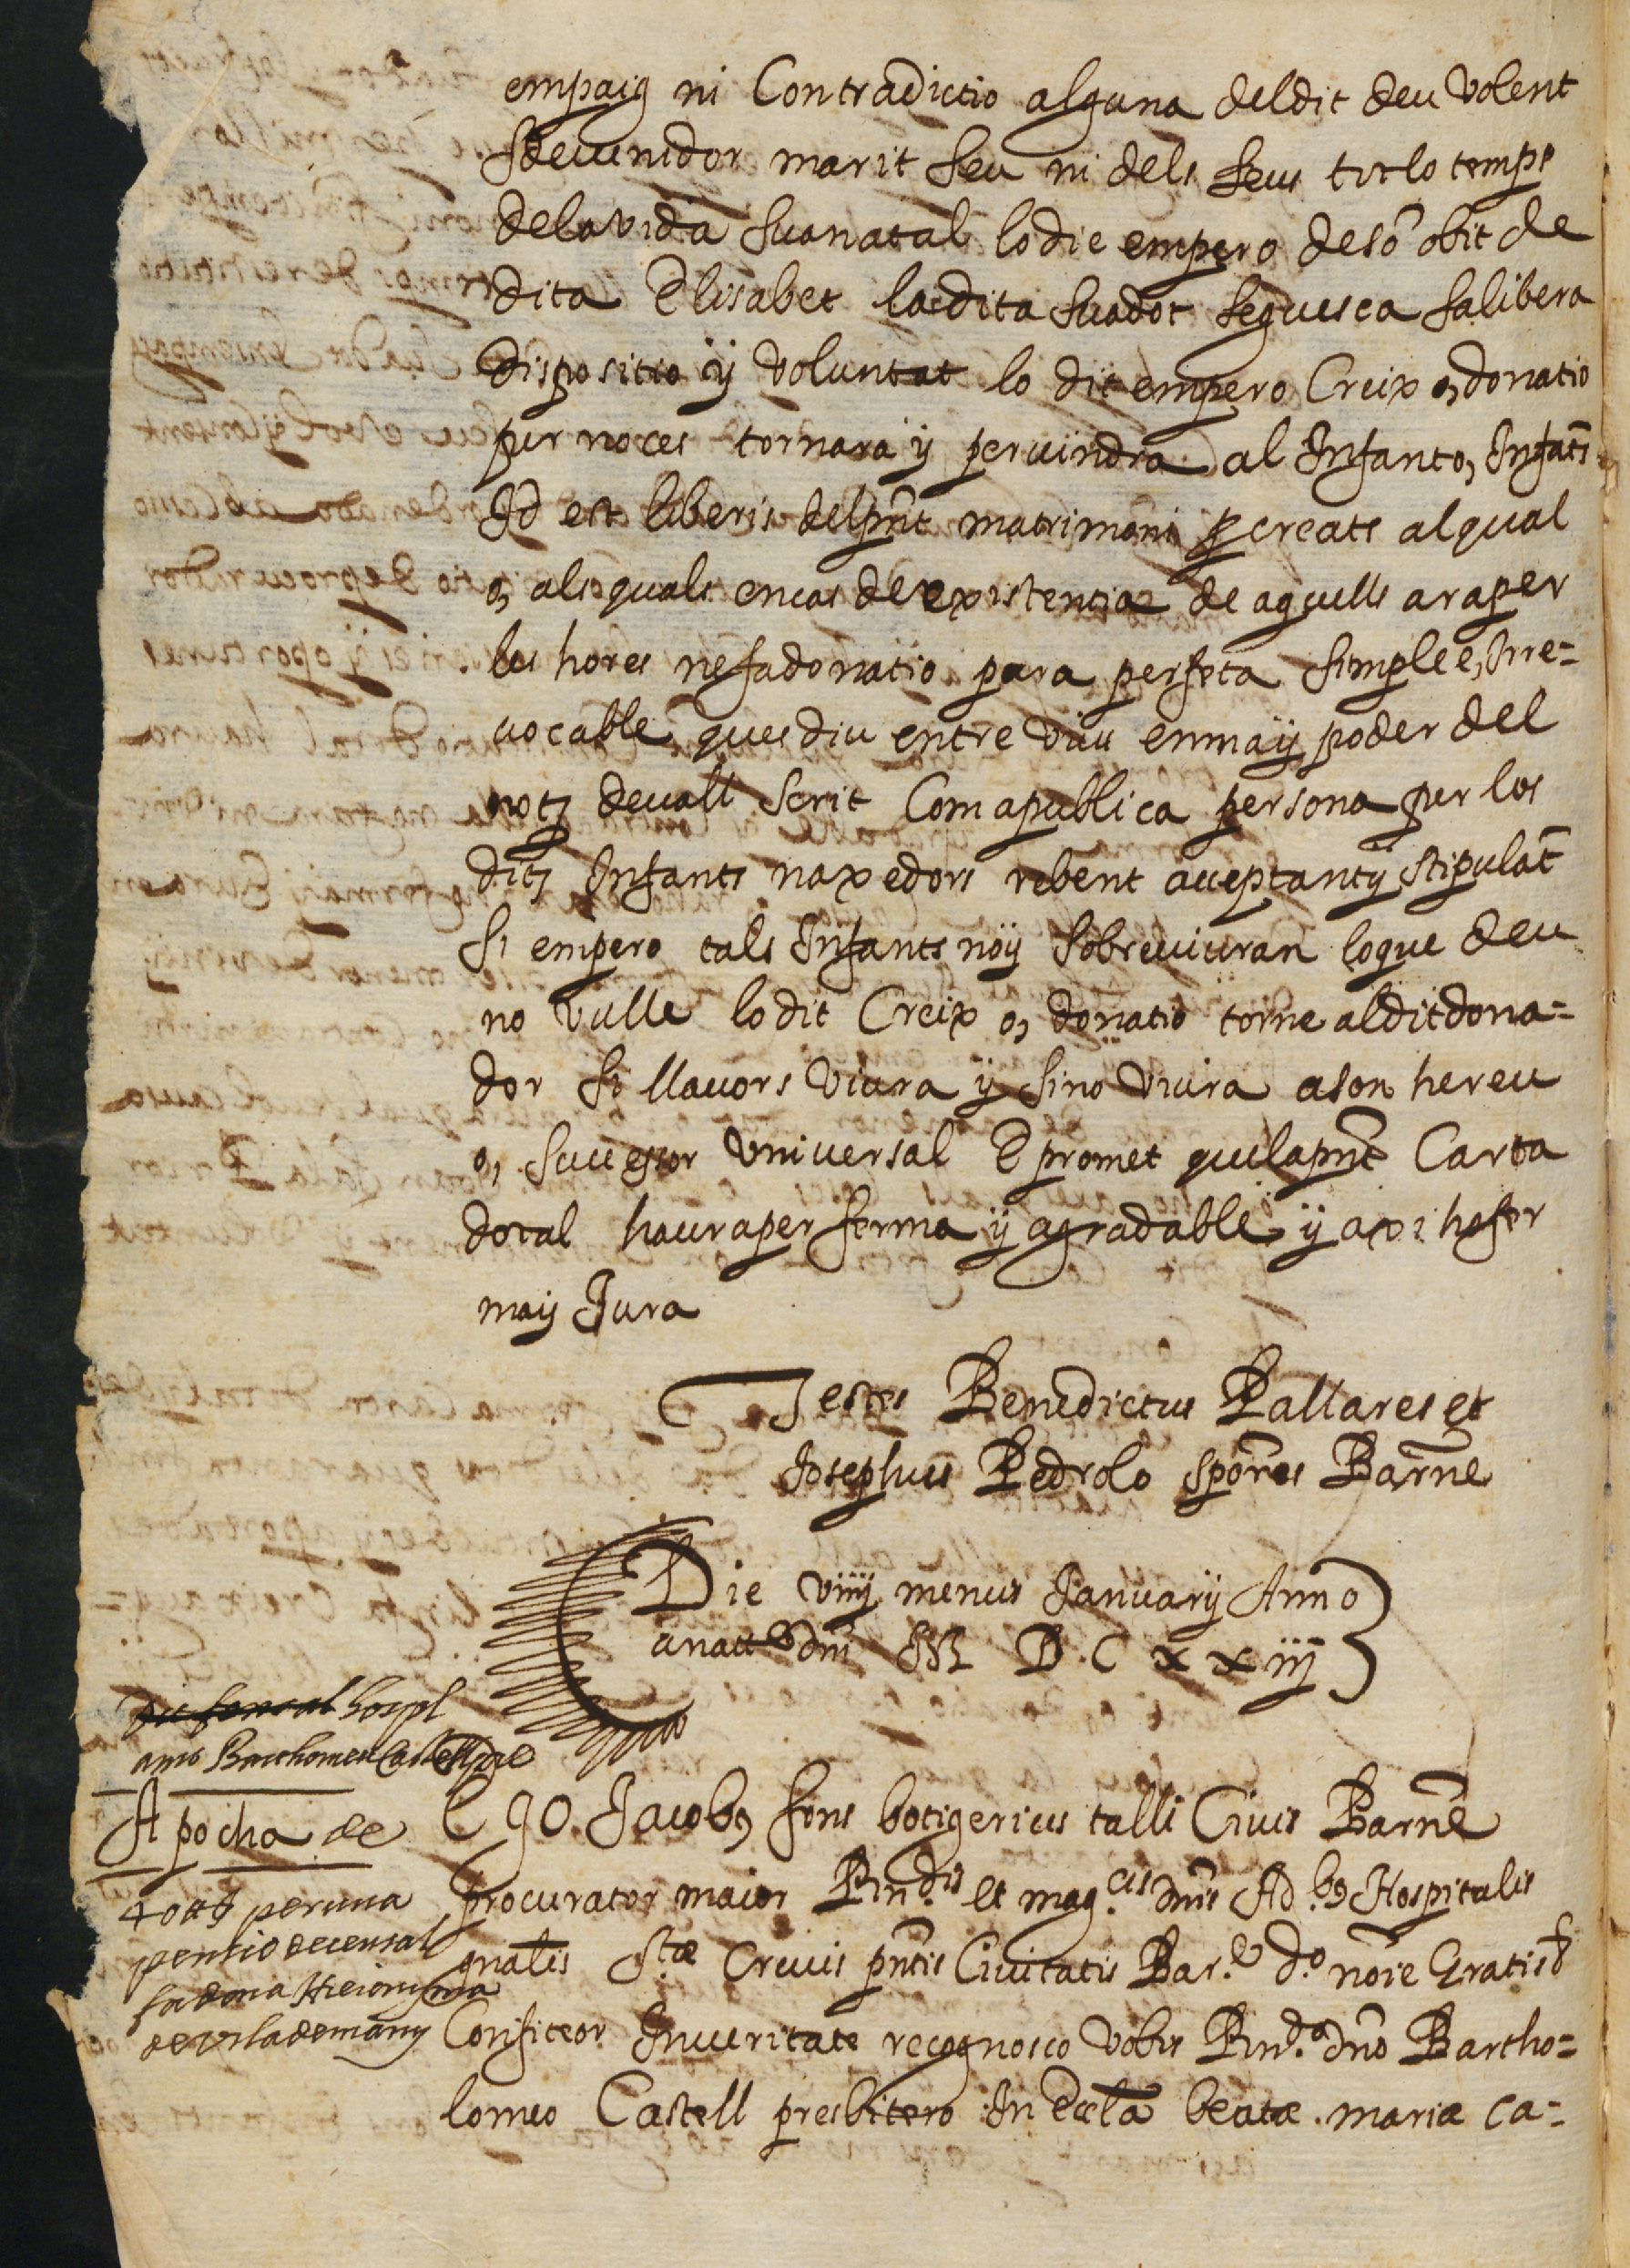 empaig ni Contradictio alguna deldit deu volent
sdevenidor marit seu ni dels seus tot lo temps
dela vida suanatal lo die empero de sō obit de
dita Elisabet la dita suadot seguesca salibera
dispositio ÿ voluntat lo dit empero Creix o, donatio
per noces tornara ÿ pervindra al Infant o, Infāts
Id est liberis delpn̄t matrimoni ꝓcreats alqual
o, als quals encas de existencia de aquells araper
les hores nefadonatio pura perfeta simple e, Irre=
uocable ques diu entre viu enmaÿ poder del
notȝ deuall scrit Comapublica persona per los
ditȝ Infants naxedors rebent acceptantÿ stipulāt
Si empero tals Infants noÿ sobreviuran loque deu
no vulle lo dit Creix o, donatio torne aldit dona=
dor si llauors viura ÿ sino viura ason hereu
o, successor vniuersal E promet quelapn̄t Carta
dotal hauraper ferma ÿ agradable ÿ axi hofer
maÿ Jura
Testes Benedictus Pallares et
Josephus Pedrolo spōres Barn̄e
Die viiij mensis Januarij Anno
anatt dn̄i M D.C xxiij
hospl
ams Barthomeu Castell pre
Apocha de
40 ℔ peruna
pensio decensal
fa dona Hieronyma
de vilademany
Ego Jacobꝰ fons botigerius talli Ciuis Barn̄e
procurator maior Rn.dis et mag.cis dn̄is Ad.bꝰ Hospitalis
gn̄alis S.tæ Crucis pn̄tis Ciuitatis Bar.e d.o noīe Gratis &
Confiteor Inueritate recognosco vobis Rn.do dn̄o Bartho=
lomeo Castell presbitero In Eccl̄a beatæ mariæ ca=